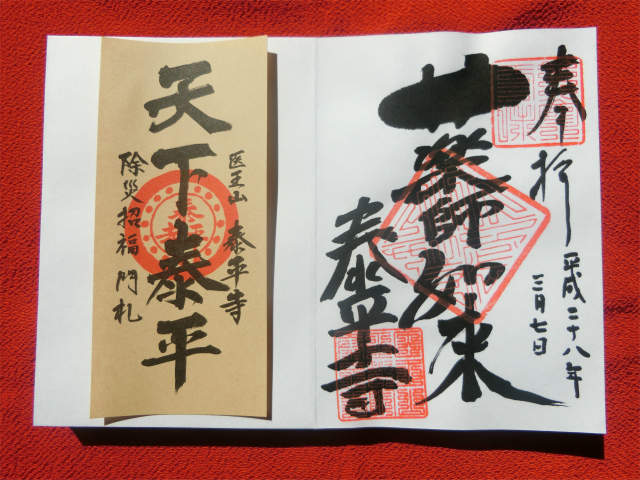 奉拝
平成二十八年
三月七日
薬師如来
泰平寺
医王山 泰平寺
天下泰平
除災招福門札